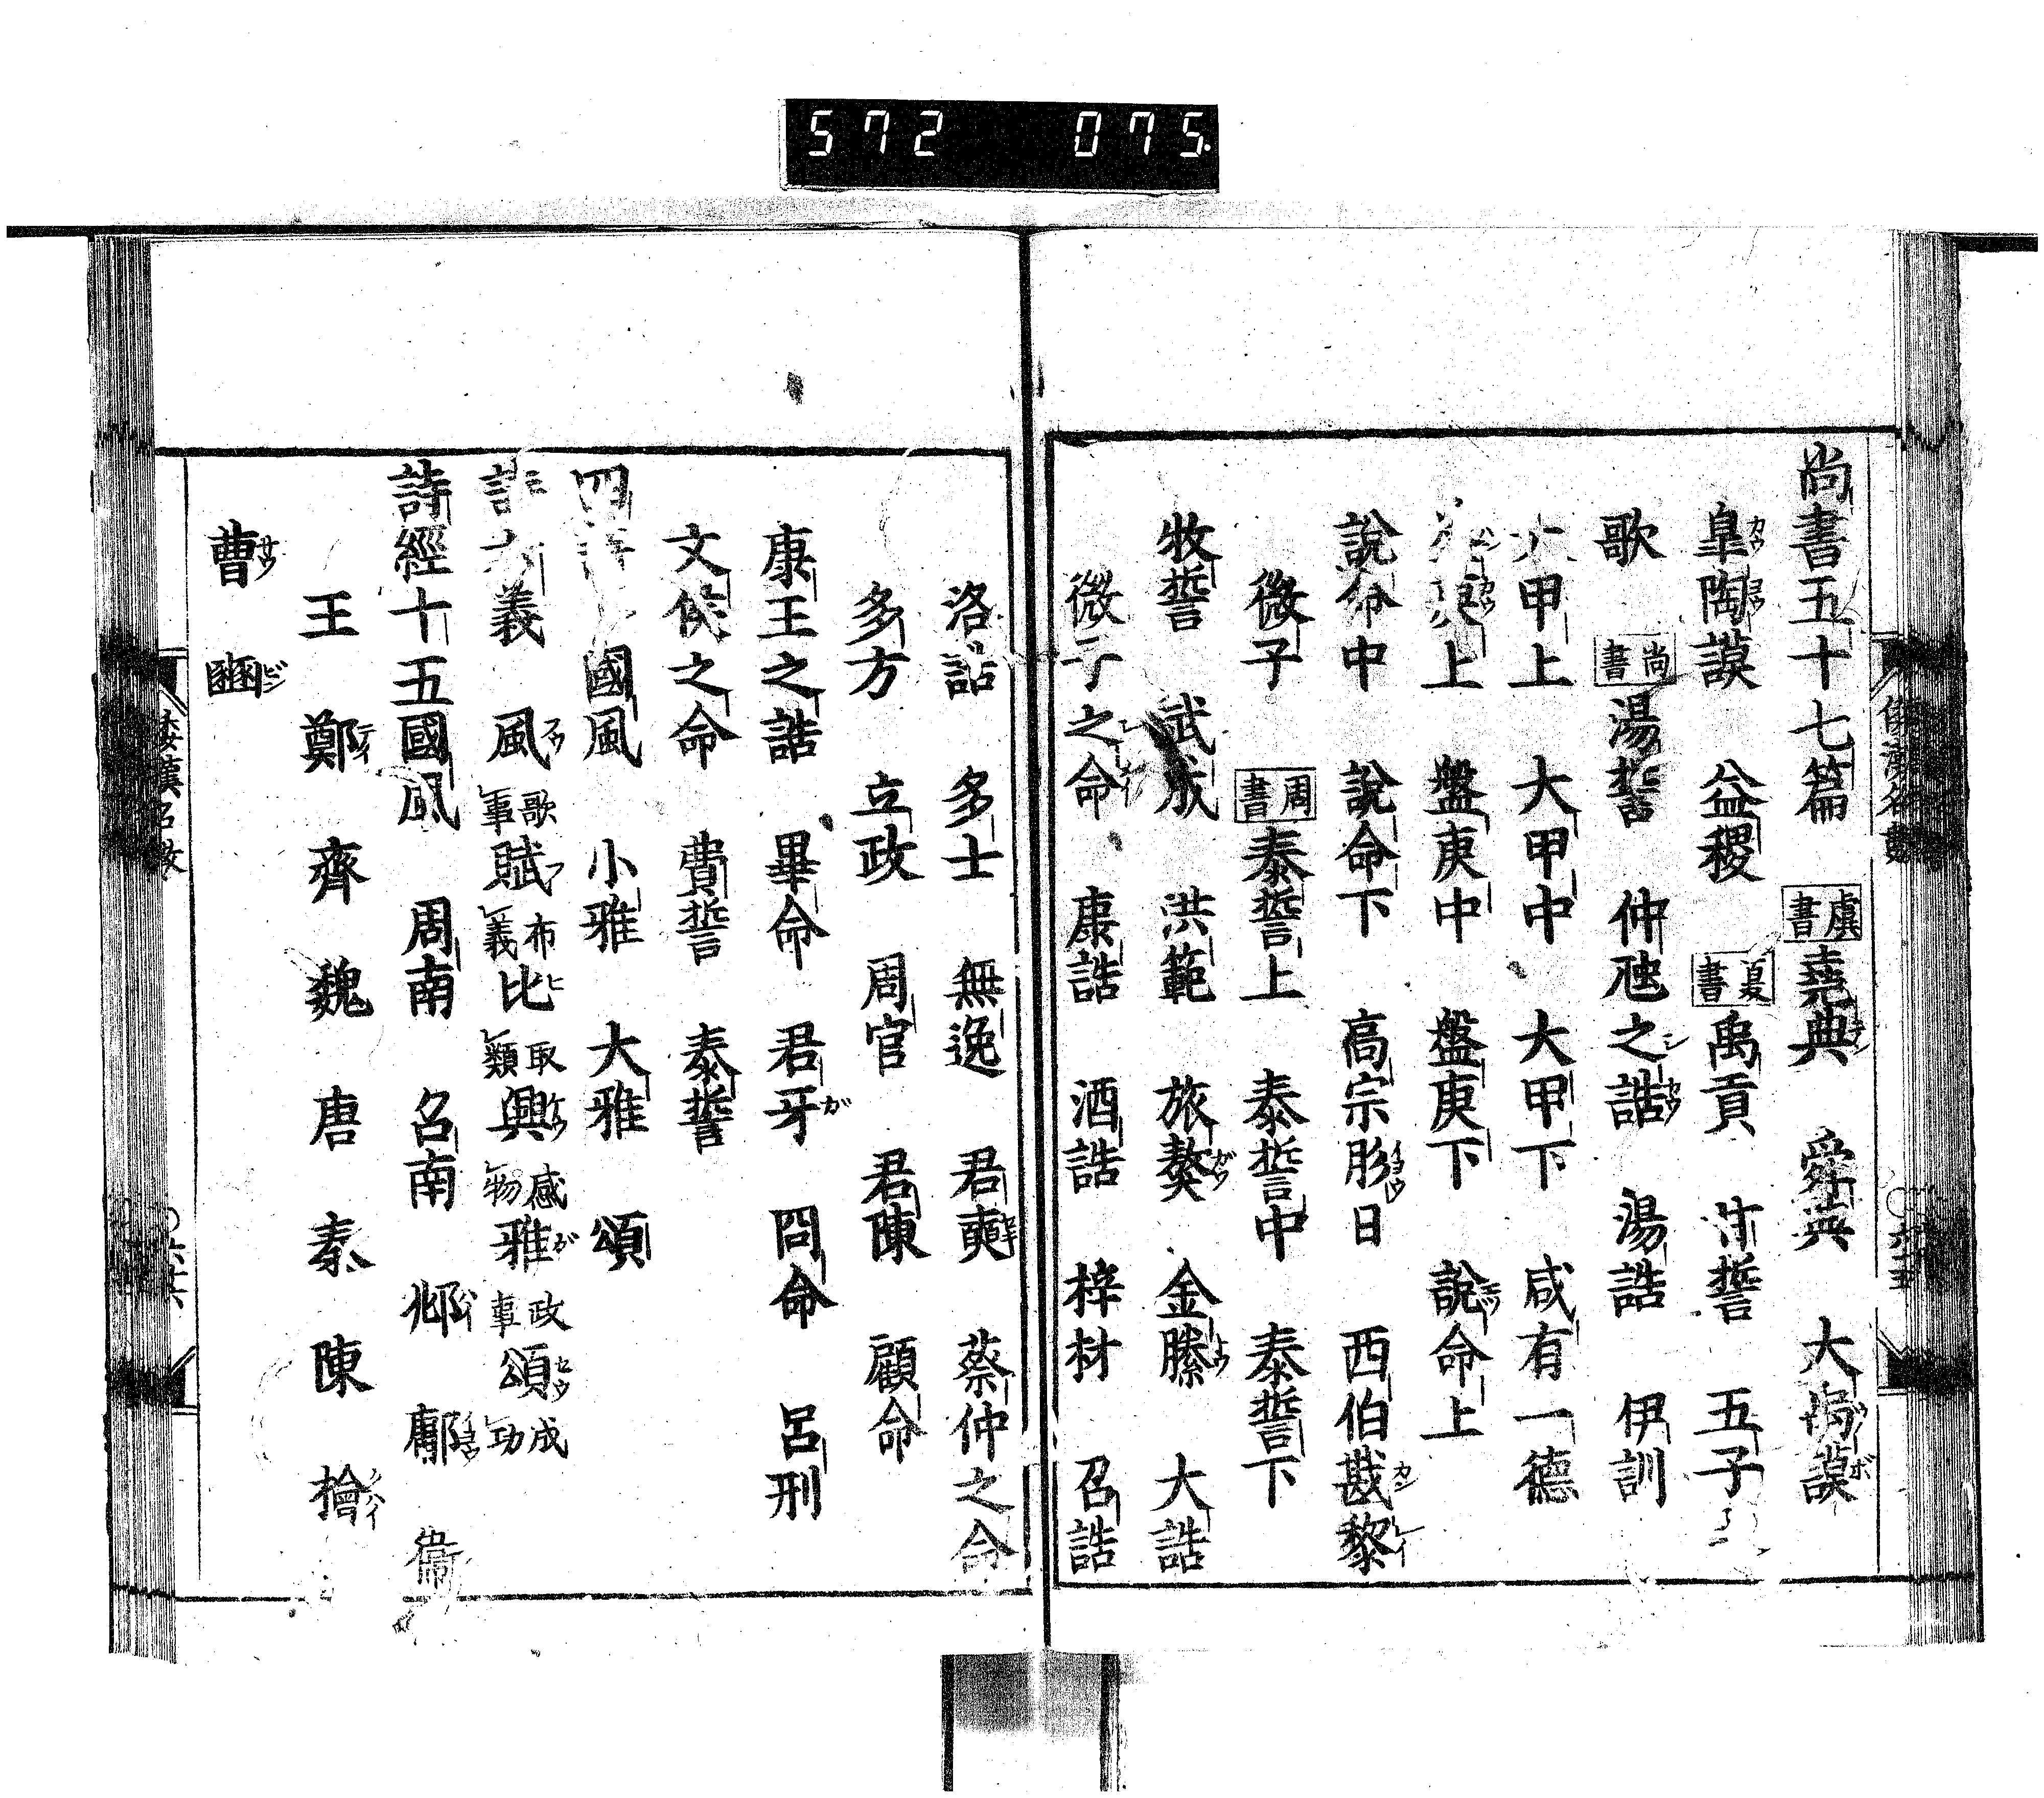 572 075
尚書五十七篇 虞書 堯典 舜典 大禹謨
皐陶謨 益稷 夏書 禹貢 甘誓 五子
歌 尚書 湯誓 仲虺之誥 湯誥 伊訓
甲上 大甲中 大甲下 咸有一德
上 盤庚中 盤庚下 說命上
說命中 說命下 高宗肜日 西伯戡黎
微子 周書 泰誓上 泰誓中 泰誓下
牧誓 武成 洪範 旅獒 金縢 大誥
微子之命 康誥 酒誥 梓材 召誥
洛誥 多士 無逸 君奭 蔡仲之命
多方 立政 周官 君陳 顧命
康王之誥 畢命 君牙 冏命 呂刑
文侯之命 費誓 泰誓
四詩 國風 小雅 大雅 頌
義 風 歌事 賦 布義 比 取類 興 感物 雅 政事 頌 成功
詩經十五國風 周南 召南 邶 鄘 衞
王 鄭 齊 魏 唐 秦 陳 檜
曹 豳